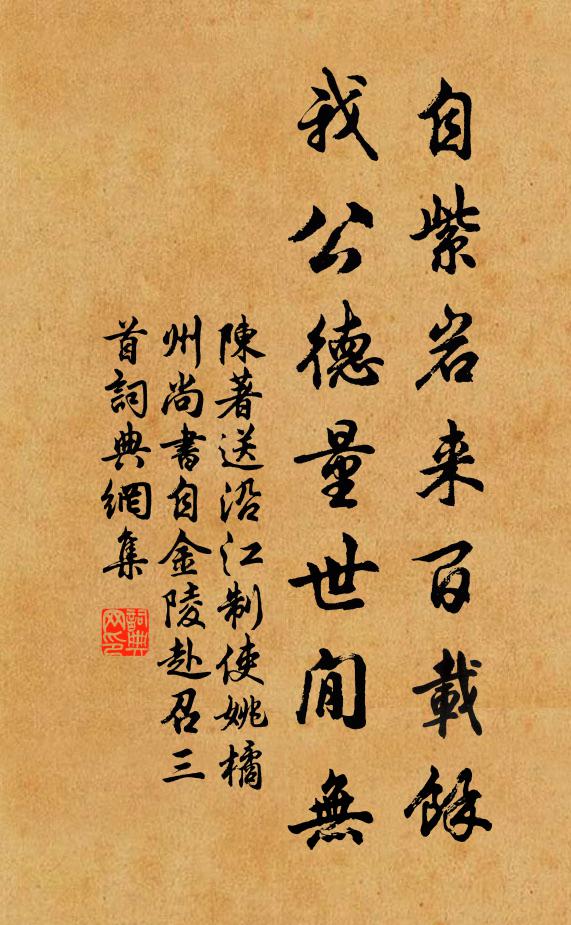 自紫岩来百載餘
我公德量世間無
陳著送沿江制使姚橘
州尚書自金陵赴召三
首詞典網集
詞典
网印